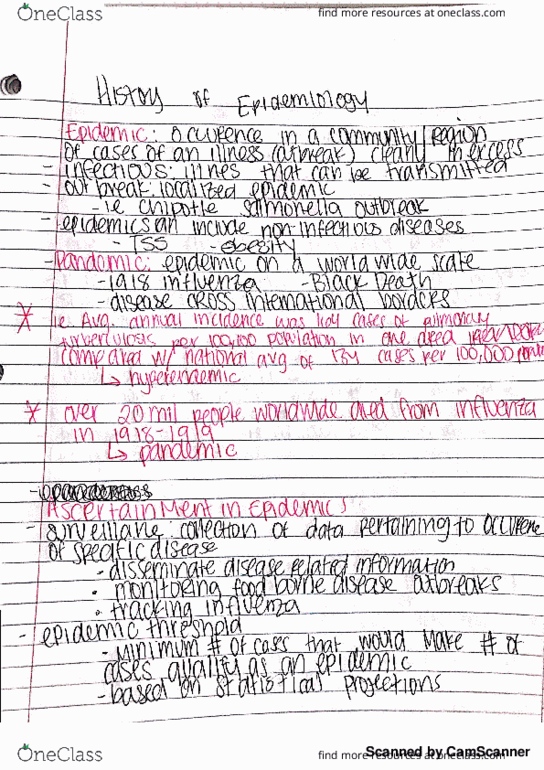 OneClass
find more resources at oneclass.com
History of Epidemiology
Epidemic: occurence in a community/region
of cases of an illness (outbreak) clearly in excess
- infectious: illnes that can be transmitted
- outbreak: localized epidemic
- i.e. chipotle salmonella outbreak
- epidemics can include non infectious diseases
- TSS - obesity
- Pandemic: epidemic on a world wide scale
- 1918 influenza - Black Death
- disease cross international borders
i.e. Avg. annual incidence was cases of pulmonary
tuberculosis per 100,000 population in one area
compared w/ national avg of cases per 100,000
↳ hyperendemic
* over 20 mil people worldwide died from influenza
in 1918-1919
↳ pandemic
Ascertainment in Epidemics
- surveillane: collection of data pertaining to occurene
of specific disease
- disseminate disease related information
• monitoring food borne disease outbreaks
• tracking influenza
- epidemic threshold
- minimum # of cases that would make # of
cases qualify as an epidemic
- based on statistical projections
OneClass
find more resources at oneclass.com
Scanned by CamScanner